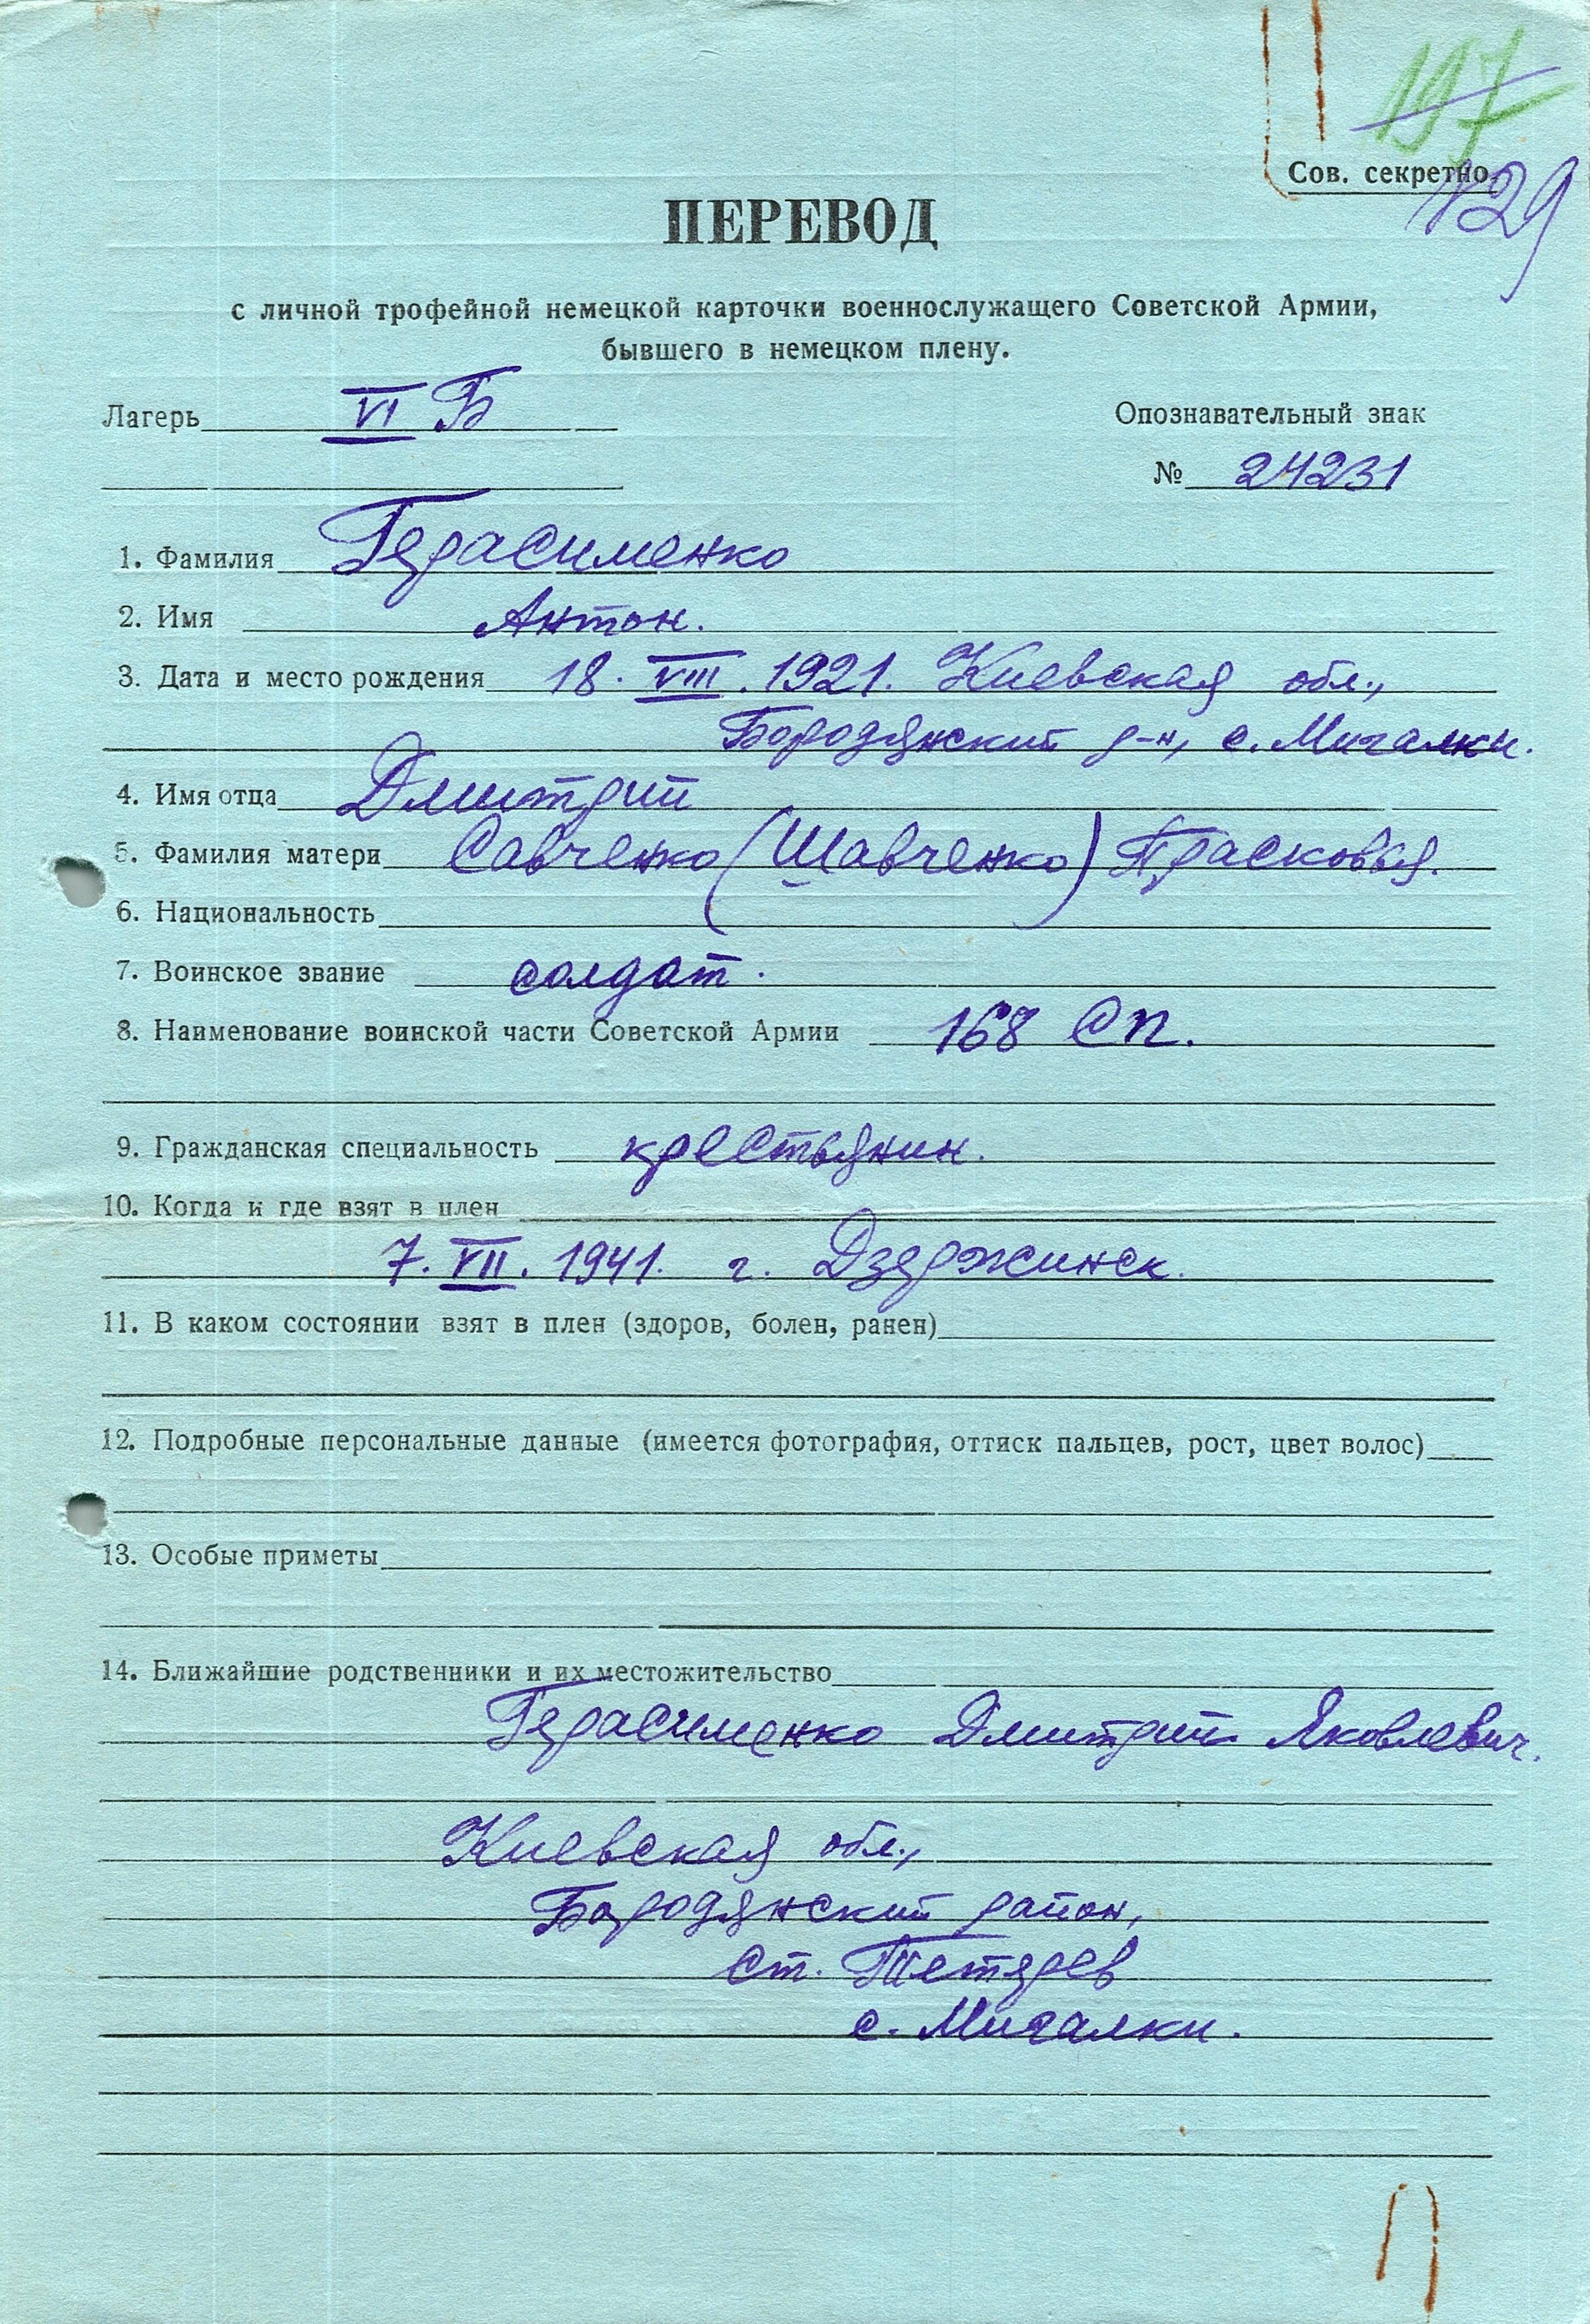 197
Сов. секретно.
129
ПЕРЕВОД
с личной трофейной немецкой карточки военнослужащего Советской Армии,
бывшего в немецком плену.
Лагерь VI Б
Опознавательный знак
№ 24231
1. Фамилия Герасименко
2. Имя Антон.
3. Дата и место рождения 18. VIII. 1921. Киевская обл.,
Бородянский р-н, с. Мигалки.
4. Имя отца Дмитрий
5. Фамилия матери Савченко (Шавченко) Прасковья.
6. Национальность
7. Воинское звание солдат.
8. Наименование воинской части Советской Армии 168 сп.
9. Гражданская специальность крестьянин.
10. Когда и где взят в плен
7. VII. 1941. г. Дзержинск.
11. В каком состоянии взят в плен (здоров, болен, ранен)
12. Подробные персональные данные (имеется фотография, оттиск пальцев, рост, цвет волос)
13. Особые приметы
14. Ближайшие родственники и их местожительство
Герасименко Дмитрий Яковлевич.
Киевская обл.,
Бородянский район,
ст. Тетерев
с. Мигалки.